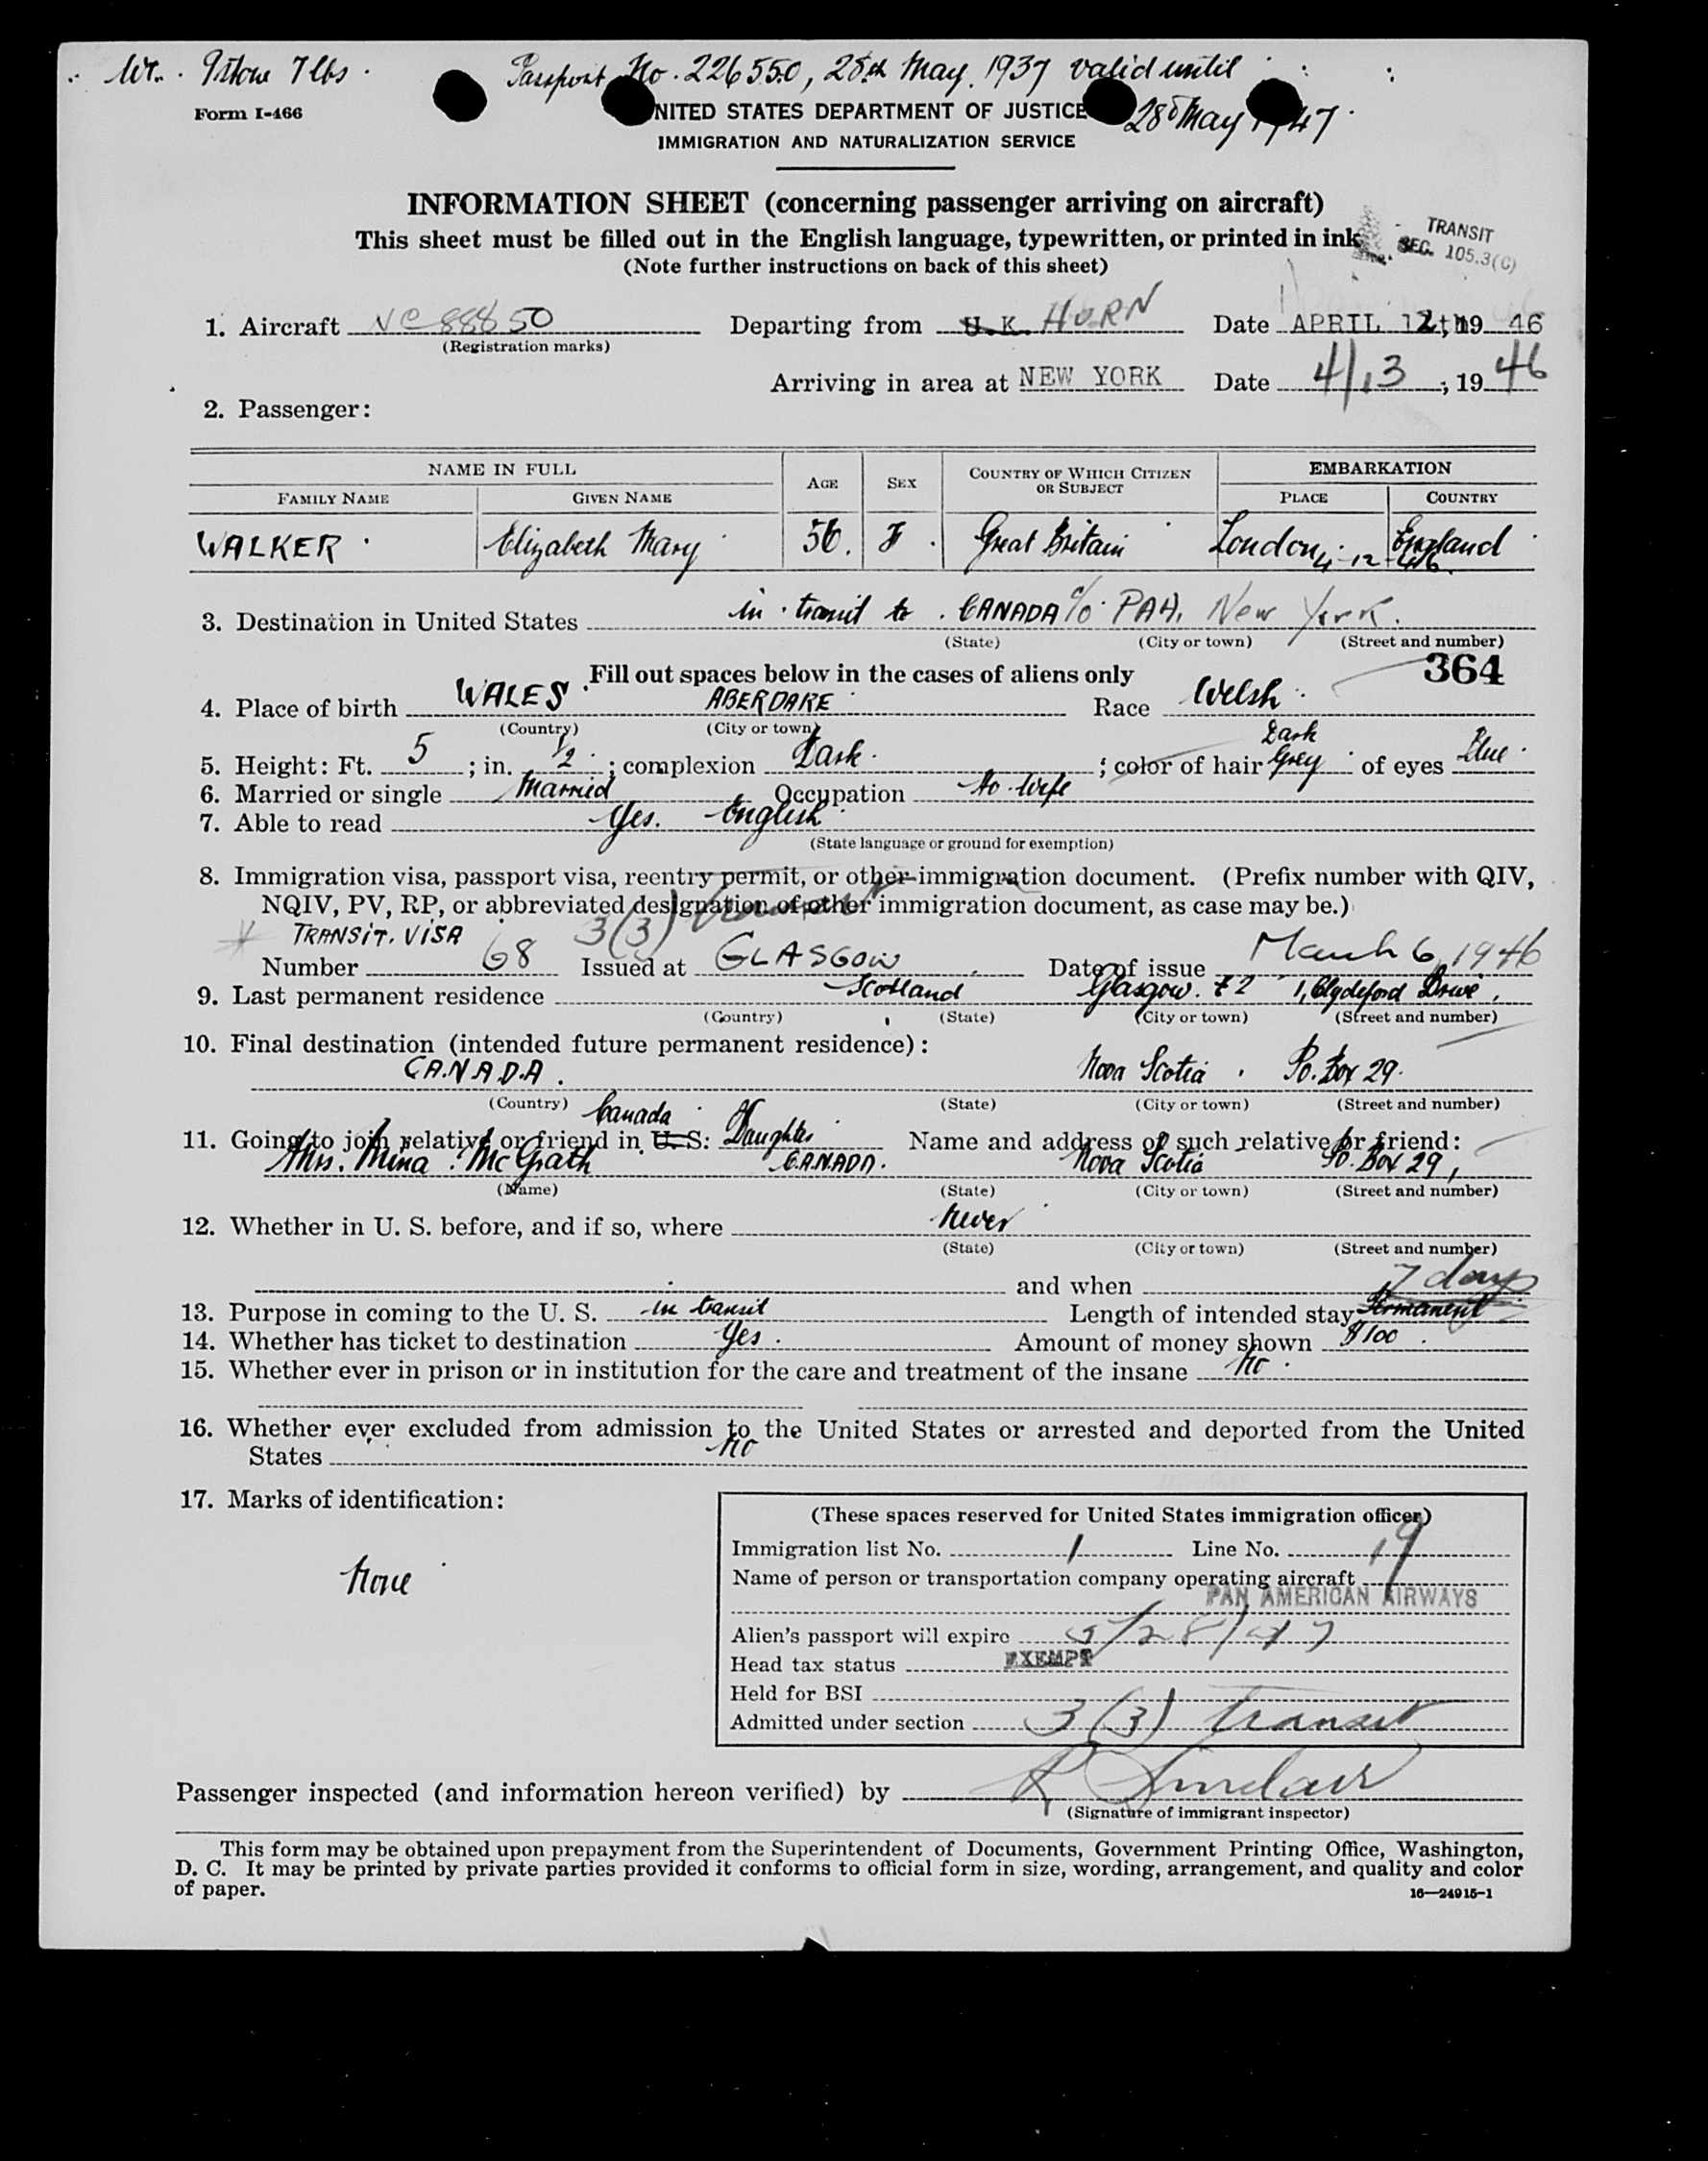 Wt. 9 stone 7 lbs. Passport No. 226550, 28th May. 1937 valid until
28th May 1947.
Form I-466
UNITED STATES DEPARTMENT OF JUSTICE
IMMIGRATION AND NATURALIZATION SERVICE
INFORMATION SHEET (concerning passenger arriving on aircraft)
This sheet must be filled out in the English language, typewritten, or printed in ink.
(Note further instructions on back of this sheet)
TRANSIT
SEC. 105.3(C)
1. Aircraft NC 88850 Departing from U.K. HURN Date APRIL 12th, 19 46
(Registration marks)
Arriving in area at NEW YORK Date 4/13, 19 46
2. Passenger:
NAME IN FULL AGE SEX COUNTRY OF WHICH CITIZEN OR SUBJECT EMBARKATION
FAMILY NAME GIVEN NAME PLACE COUNTRY
WALKER Elizabeth Mary 56. F. Great Britain London England
4-12-46
3. Destination in United States in transit to CANADA c/o PAA, New York.
(State) (City or town) (Street and number)
Fill out spaces below in the cases of aliens only 364
4. Place of birth WALES ABERDARE Race Welsh
(Country) (City or town)
5. Height: Ft. 5; in. 1/2; complexion Dark; color of hair Dark Grey of eyes Blue
6. Married or single Married Occupation Ho. Wife
7. Able to read Yes. English
(State language or ground for exemption)
8. Immigration visa, passport visa, reentry permit, or other immigration document. (Prefix number with QIV,
NQIV, PV, RP, or abbreviated designation of other immigration document, as case may be.)
TRANSIT. VISA 3(3) Transit
Number 68 Issued at GLASGOW Date of issue March 6, 1946
9. Last permanent residence Scotland Glasgow. 1, Clydeford Drive,
(Country) (State) (City or town) (Street and number)
10. Final destination (intended future permanent residence):
CANADA. Nova Scotia P.o. Box 29.
(Country) (State) (City or town) (Street and number)
Canada
11. Going to join relative or friend in U. S: Daughter Name and address of such relative or friend:
Mrs. Mina McGrath CANADA. Nova Scotia P.o. Box 29,
(Name) (State) (City or town) (Street and number)
12. Whether in U. S. before, and if so, where Never
(State) (City or town) (Street and number)
and when
7 days
13. Purpose in coming to the U. S. in transit Length of intended stay Permanent
14. Whether has ticket to destination Yes. Amount of money shown $100
15. Whether ever in prison or in institution for the care and treatment of the insane No.
16. Whether ever excluded from admission to the United States or arrested and deported from the United
States No
17. Marks of identification:
None
(These spaces reserved for United States immigration officer)
Immigration list No. 1 Line No. 19
Name of person or transportation company operating aircraft
PAN AMERICAN AIRWAYS
Alien's passport will expire 5/28/47
Head tax status EXEMPT
Held for BSI
Admitted under section 3(3) Transit
Passenger inspected (and information hereon verified) by R Sinclair
(Signature of immigrant inspector)
This form may be obtained upon prepayment from the Superintendent of Documents, Government Printing Office, Washington,
D. C. It may be printed by private parties provided it conforms to official form in size, wording, arrangement, and quality and color
of paper.
16—24915-1